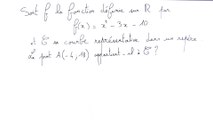 Soit f la fonction définie sur R par
f(x) = x² - 3x - 10
et C sa courbe représentative dans un repère
Le point A(-4, 18) appartient-il à C ?